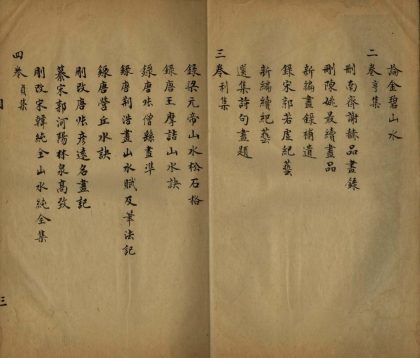 論金碧山水
二卷亨集
刪南齊謝赫品畫錄
刪陳姚最續畫品
新編畫錄補遺
錄宋郭若虛紀藝
新編續紀藝
選集詩句畫題
三卷利集
錄梁元帝山水松石格
錄唐王摩詰山水訣
錄唐張僧繇畫準
錄唐荊浩畫山水賦及筆法記
錄唐營丘水訣
刪改唐張彥遠名畫記
纂宋郭河陽林泉高致
四卷貞集
刪改宋韓純全山水純全集
三